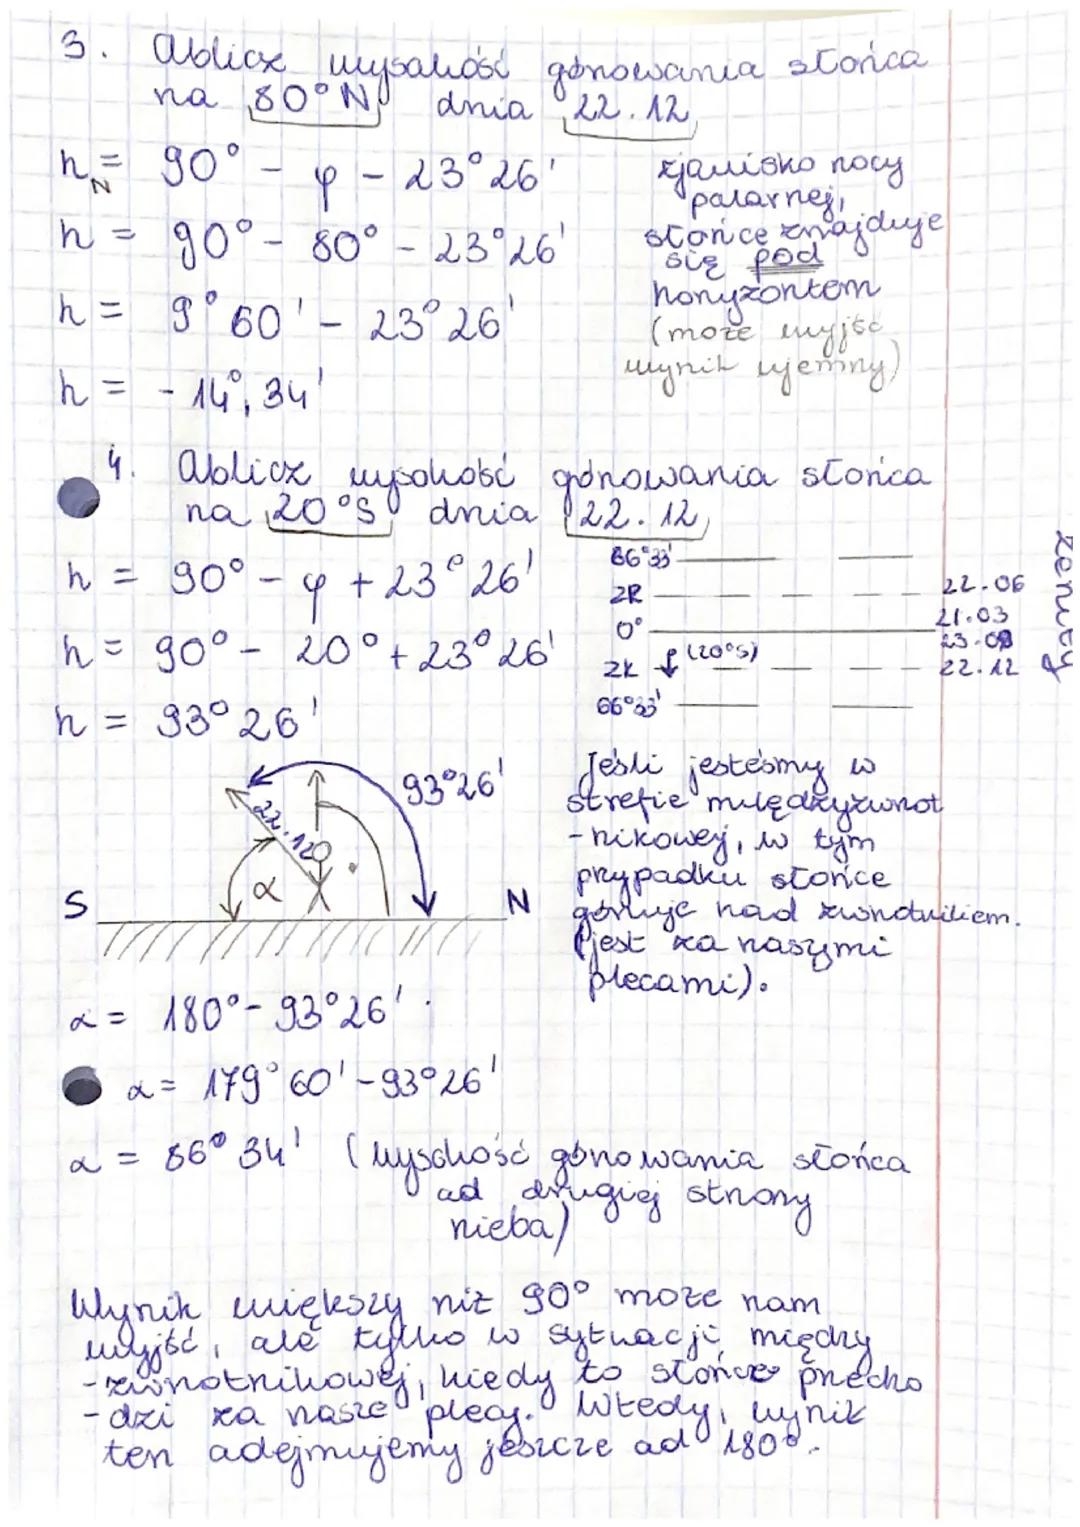 3. Oblicz wysokość górowania słońca
na 80°N dnia 22.12
h_N = 90° - φ - 23°26'
zjawisko nocy
polarnej,
h = 90° - 80° - 23°26'
słońce znajduje
się pod
horyzontem
h = 9°60' - 23°26'
(może wyjść
wynik ujemny)
h = - 14°, 34'
4. Oblicz wysokość górowania słońca
na 20°S dnia 22.12
h = 90° - φ + 23°26'
h = 90° - 20° + 23°26'
h = 93°26'
66°33'
ZR 22.06
0° 21.03
23.09
ZK (20°S) 22.12
66°33'
zenity
93°26'
22.12
α
S N
Jeśli jesteśmy w
strefie międzyzwrot
-nikowej, w tym
przypadku słońce
góruje nad zwrotnikiem.
(jest za naszymi
plecami).
α = 180° - 93°26'
α = 179°60' - 93°26'
α = 86°34' (wysokość górowania słońca
od drugiej strony
nieba)
Wynik większy niż 90° może nam
wyjść, ale tylko w sytuacji, między
-zwrotnikowej, kiedy to słońce przecho
-dzi za nasze plecy. Wtedy, wynik
ten odejmujemy jeszcze od 180°.